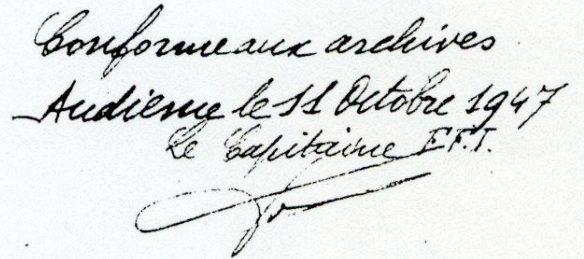 Conforme aux archives
Audierne le 11 Octobre 1947
Le Capitaine F.F.I.